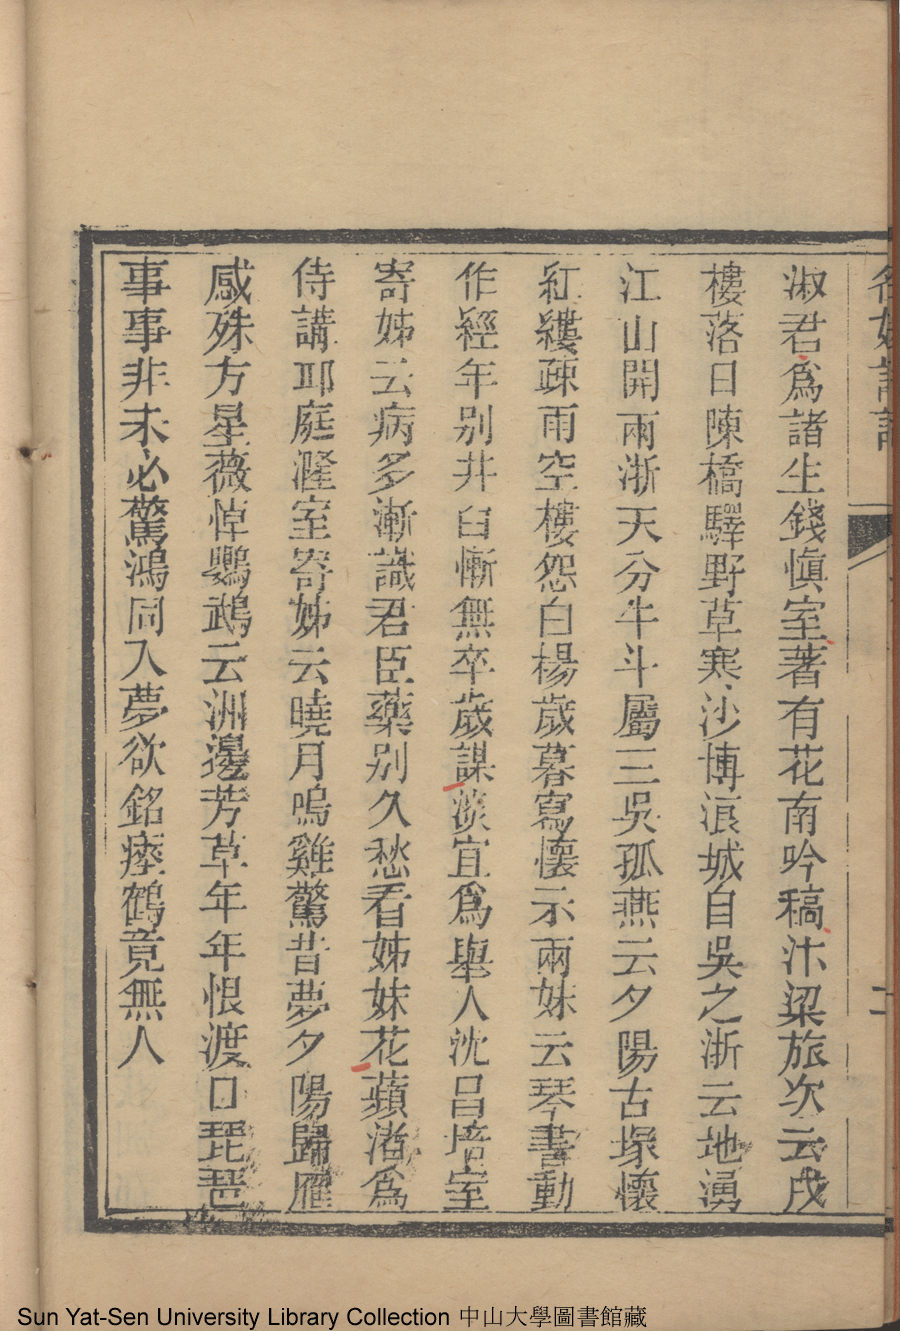 名媛詩話
二
淑君爲諸生錢愼室著有花南吟稿汴梁旅次云戍
樓落日陳橋驛野草寒沙博浪城自吳之浙云地湧
江山開兩浙天分牛斗屬三吳孤燕云夕陽古塚懷
紅縷疎雨空樓怨白楊歲暮寫懷示兩妹云琴書動
作經年別井臼慚無卒歲謀淡宜爲舉人沈昌培室
寄姊云病多漸識君臣藥別久愁看姊妹花蘋渚爲
侍講邛庭漋室寄姊云曉月嗚雞驚昔夢夕陽歸雁
感殊方星薇悼鸚鵡云洲邊芳草年年恨渡口琵琶
事事非未必驚鴻同入夢欲銘瘞鶴竟無人
Sun Yat-Sen University Library Collection 中山大學圖書館藏